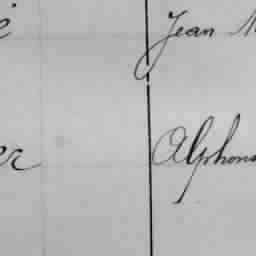 é Jean M
er Alphons